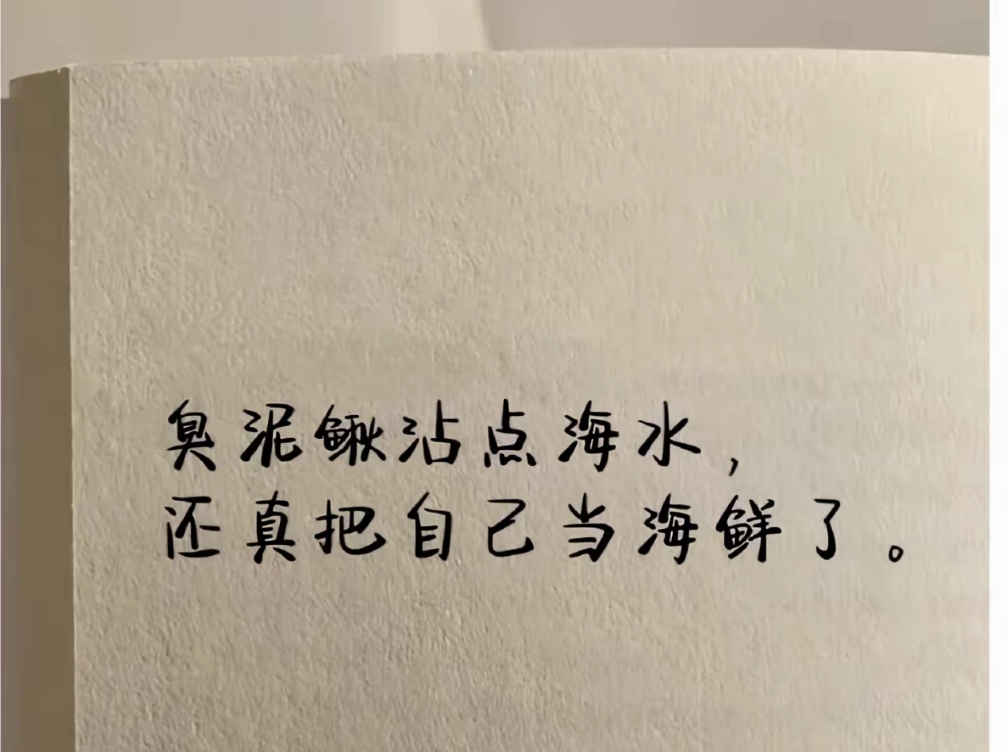 臭泥鳅沾点海水，
还真把自己当海鲜了。